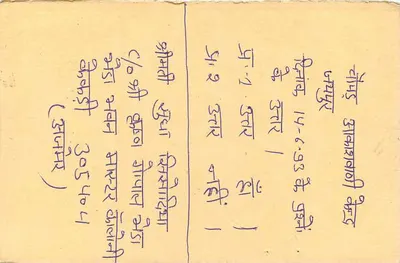 चौपड़ आकाशवाणी केन्द्र
जयपुर
दिनांक 14-6-93 के प्रश्नों
के उत्तर ।
प्र-1 उत्तर हाँ ।
प्र-2 उत्तर नहीं ।
श्रीमती सुधा
C/o श्री कृष्ण गोपाल मेड़ा
मेड़ा भवन मास्टर कॉलोनी
केकड़ी 305404
(अजमेर)